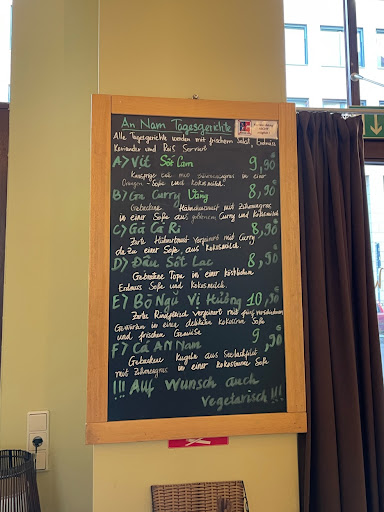 An Nam Tagesgerichte
Alle Tagesgerichte werden mit frischem Salat, Erdnüss
Koriander und Reis Serviert
A) Vit Sốt Cam 9,90€
Knusprige mit in einer
Orangen-Soße und Kokosmilch.
B) Ga Curry Vàng 8,90€
Gebackene Hähnchenbrust mit Zitronengras
in einer Soße aus gelbem Curry und Kokosmilch
C) Gà Cà Ri 8,90€
Zarte Hühnerbrust verfeinert mit Curry
dazu einer Soße aus Kokosmilch.
D) Đâu Sốt Lac 8,90€
Gebackene Tofu in einer köstlichen
Erdnuss Soße und Kokosmilch.
E) Bò Ngũ Vi Hương 10,90€
Zarte Rindfleisch verfeinert mit fünf verschiedenen
Gewürzen in einer delikate Kokosnuss Soße
und frischen Gemüse
F) Cá An Nam 9,90€
Gebackene Kugeln aus Seelachsfilet
mit Zitronengras in einer Kokosnuss Soße
!!! Auf Wunsch auch
Vegetarisch !!!